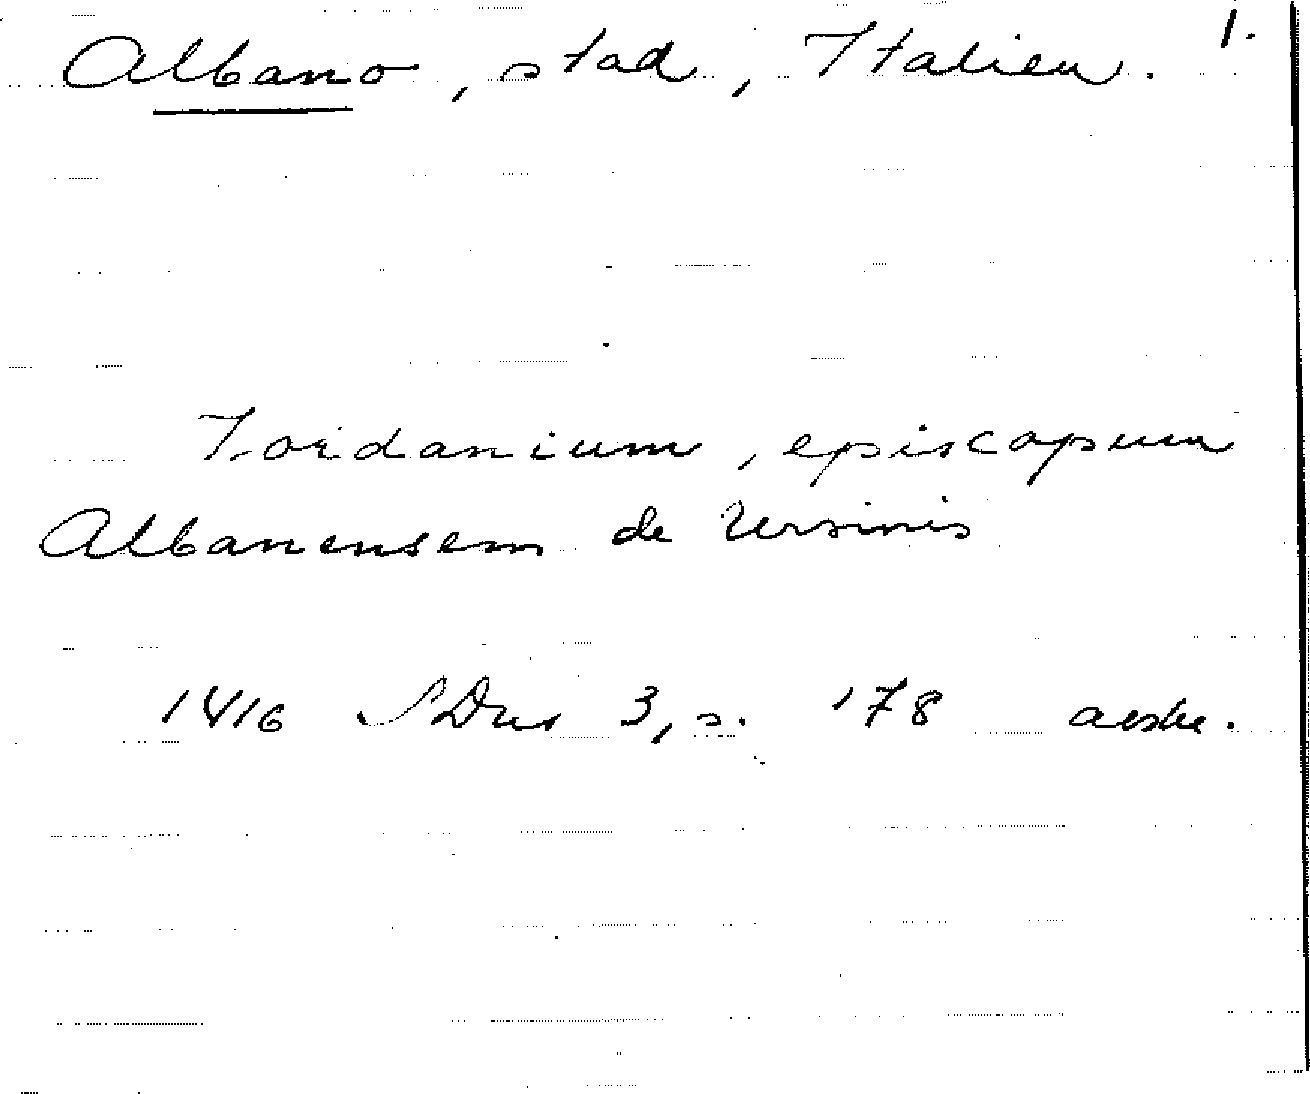 Albano, stad, Italien. 1.
Iordanium, episcopum
Albanensem de Ursinis
1416 SDns 3, s. 178 avskr.